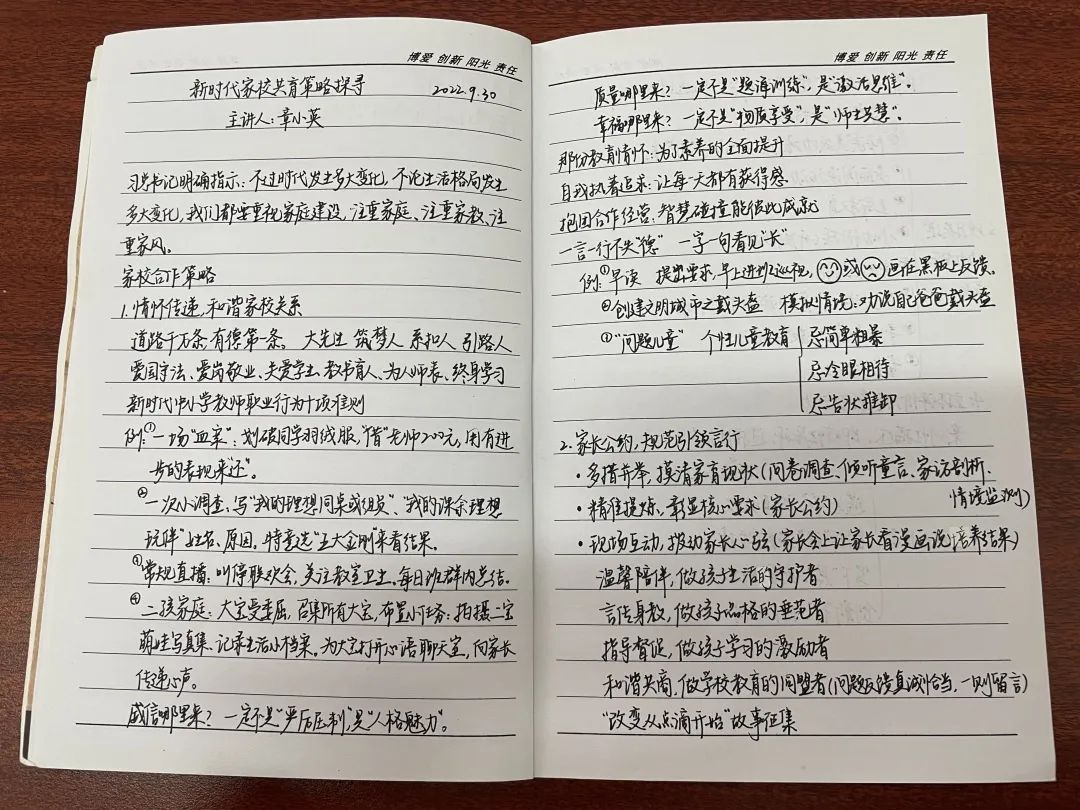 博爱 创新 阳光 责任
新时代家校共育策略探寻 2022.9.30
主讲人:章小英
习总书记明确指示:不论时代发生多大变化,不论生活格局发生
多大变化,我们都要重视家庭建设,注重家庭、注重家教、注
重家风。
家校合作策略
1.情怀传递,和谐家校关系
道路千万条,有德第一条。 大先生 筑梦人 系扣人 引路人
爱国守法、爱岗敬业、关爱学生、教书育人、为人师表、终身学习
新时代中小学教师职业行为十项准则
例:①一场“血案”:划破同学羽绒服,“借”老师200元,用有进
步的表现来“还”。
②一次小调查,写“我的理想同桌或组员”、“我的课余理想
玩伴”姓名、原因,特意选“五大金刚”来看结果。
③常规直播,叫停联欢会,关注教室卫生,每日班群内总结。
④二孩家庭:大宝受委屈,召集所有大宝,布置小任务:拍摄二宝
萌娃写真集、记录生活小档案。为大宝打开心语聊天室,向家长
传递心声。
威信哪里来?一定不是“严厉压制”,是“人格魅力”。
博爱 创新 阳光 责任
质量哪里来?一定不是“题海训练”,是“激活思维”。
幸福哪里来?一定不是“物质享受”,是“师生共慧”。
那份教育情怀:为了素养的全面提升
自我执着追求:让每一天都有获得感
抱团合作经营:智慧碰撞能彼此成就
一言一行不失“德” 一字一句看见“长”
例:①早读 提出要求,早上进班巡视,或画在黑板上反馈。
②创建文明城市之戴头盔 模拟情境:劝说自己爸爸戴头盔
③“问题儿童” 个性儿童教育
忌简单粗暴
忌冷眼相待
忌告状推卸
2.家长公约,规范引领言行
·多措并举,摸清家育现状(问卷调查、倾听童言、家访剖析、
情境监测)
·精准提炼,彰显核心要求(家长公约)
·现场互动,拨动家长心弦(家长会上让家长看漫画说培养结果)
温馨陪伴,做孩子生活的守护者
言传身教,做孩子品格的垂范者
指导督促,做孩子学习的激励者
和谐共商,做学校教育的同盟者(问题反馈真诚恰当,一则留言)
“改变从点滴开始”故事征集